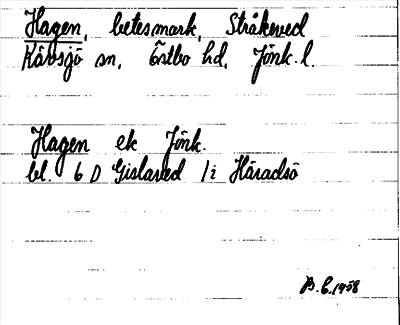 Hagen, betesmark, Stråkeved
Kävsjö sn, Östbo hd, Jönk. l.
Hagen ek Jönk.
bl. 6 D Gislaved 1i Häradsö
B. E. 1958